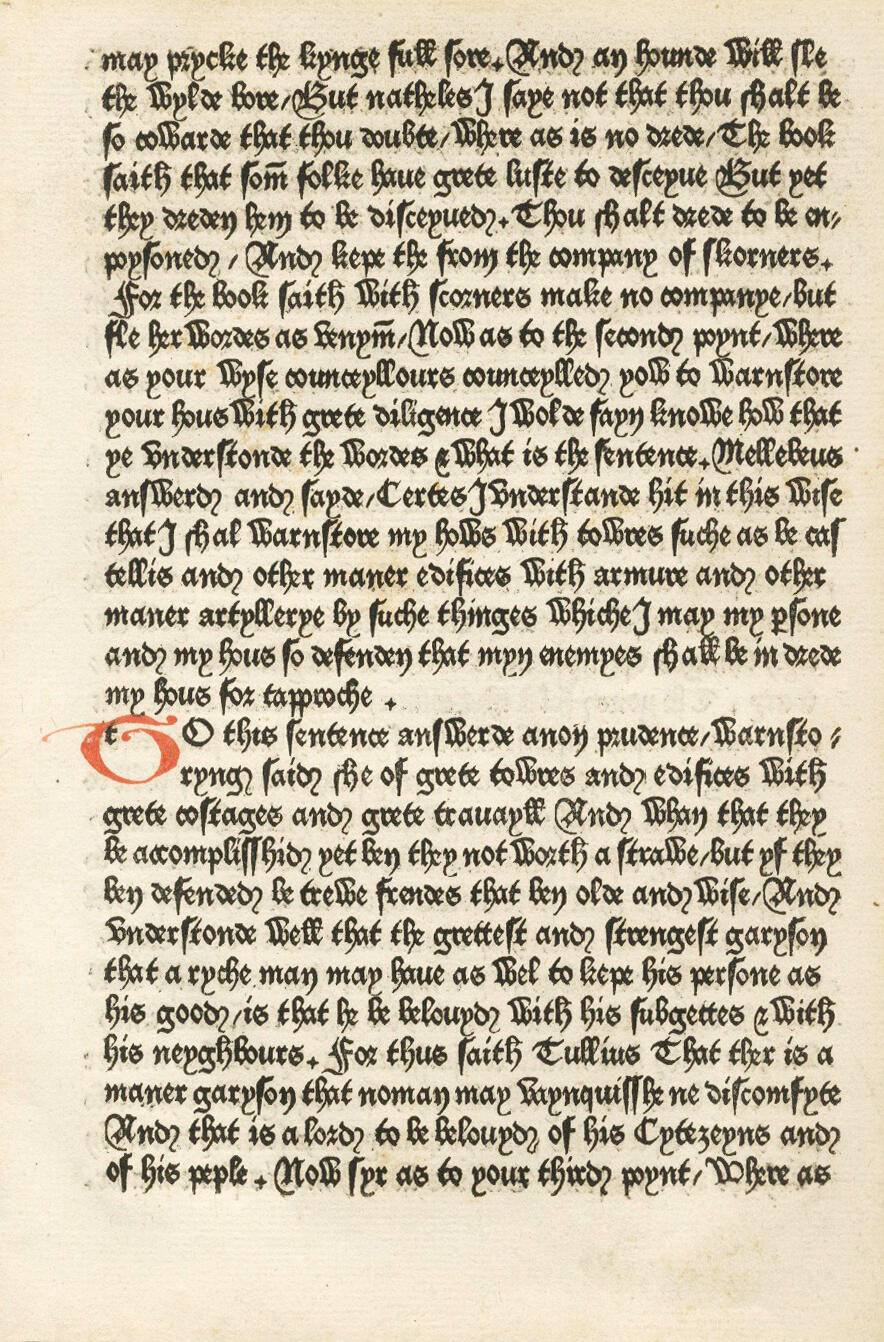 may prycke the kynge full sore. And an hounde will sle
the wylde bore/But natheles I saye not that thou shalt be
so cowarde that thou doubte/where as is no drede/The book
saith that som̄ folke haue grete luste to desceyue But yet
they dreden hem to be disceyued. Thou shalt drede to be en/
poysoned / And kepe the from the company of skorners.
For the book saith with scorners make no companye/but
fle her wordes as venym̄/Now as to the second poynt/where
as your wyse counceyllours counceylled yow to warnstore
your hous with grete diligence I wolde fayn knowe how that
ye vnderstonde the wordes & what is the sentence. Mellebeus
answerd and sayde/Certes I vnderstande hit in this wise
that I shal warnstore my hows with towres suche as be cas
tellis and other maner edifices with armure and other
maner artyllerye by suche thinges whiche I may my ꝑsone
and my hous so defenden that myn enemyes shall be in drede
my hous for tapproche .
tO this sentence answerde anon prudence/warnsto/
ryng said she of grete towres and edifices with
grete costages and grete trauayll And whan that they
be accomplisshid yet ben they not worth a strawe/but yf they
ben defended be trewe frendes that ben olde and wise/And
vnderstonde well that the grettest and strengest garyson
that a ryche man may haue as wel to kepe his persone as
his good/is that he be belouyd with his subgettes & with
his neyghbours. For thus saith Tullius That ther is a
maner garyson that noman may vaynquisshe ne discomfyte
And that is a lord to be belouyd of his Cytezeyns and
of his peple . Now syr as to your third poynt/Where as